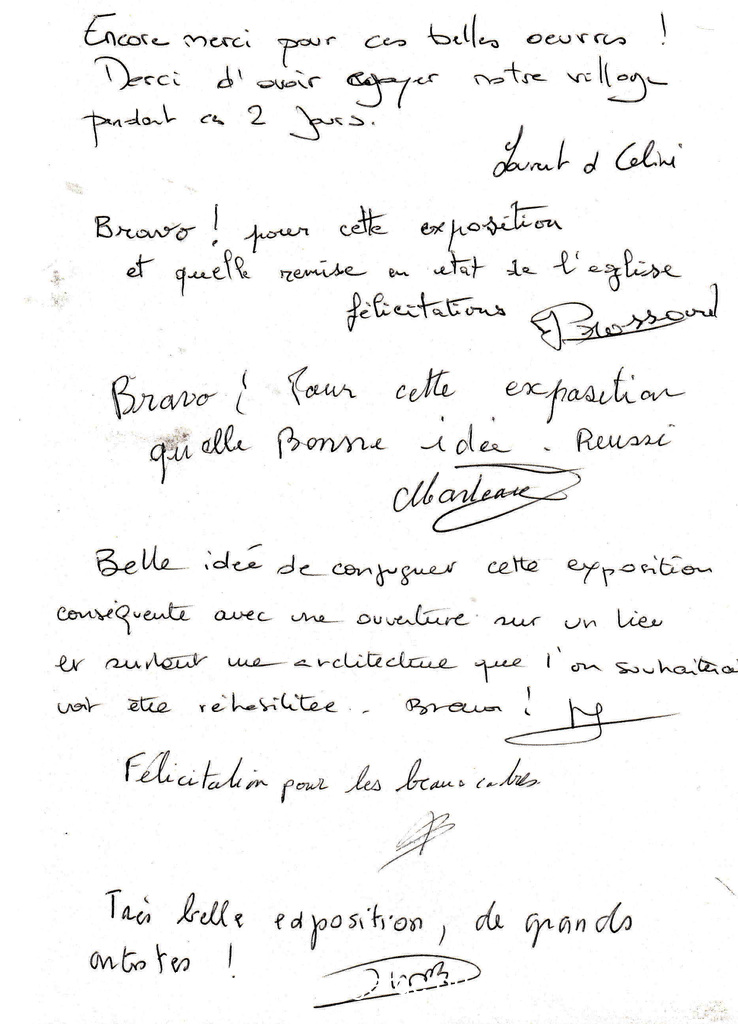 Encore merci pour ces belles oeuvres !
Merci d'avoir egayer notre village
pendant ces 2 jours.
Laurent et Celine
Bravo ! pour cette exposition
et quelle remise en etat de l'eglise
félicitations Brossard
Bravo ! Pour cette exposition
quelle Bonne idée . Reussi
Belle idée de conjuguer cette exposition
conséquente avec une ouverture sur un lieu
et surtout une architecture que l'on souhaiterai
voir être réhabilitée . Bravo !
Félicitation pour les beaux cadres
Très belle exposition, de grands
artistes !